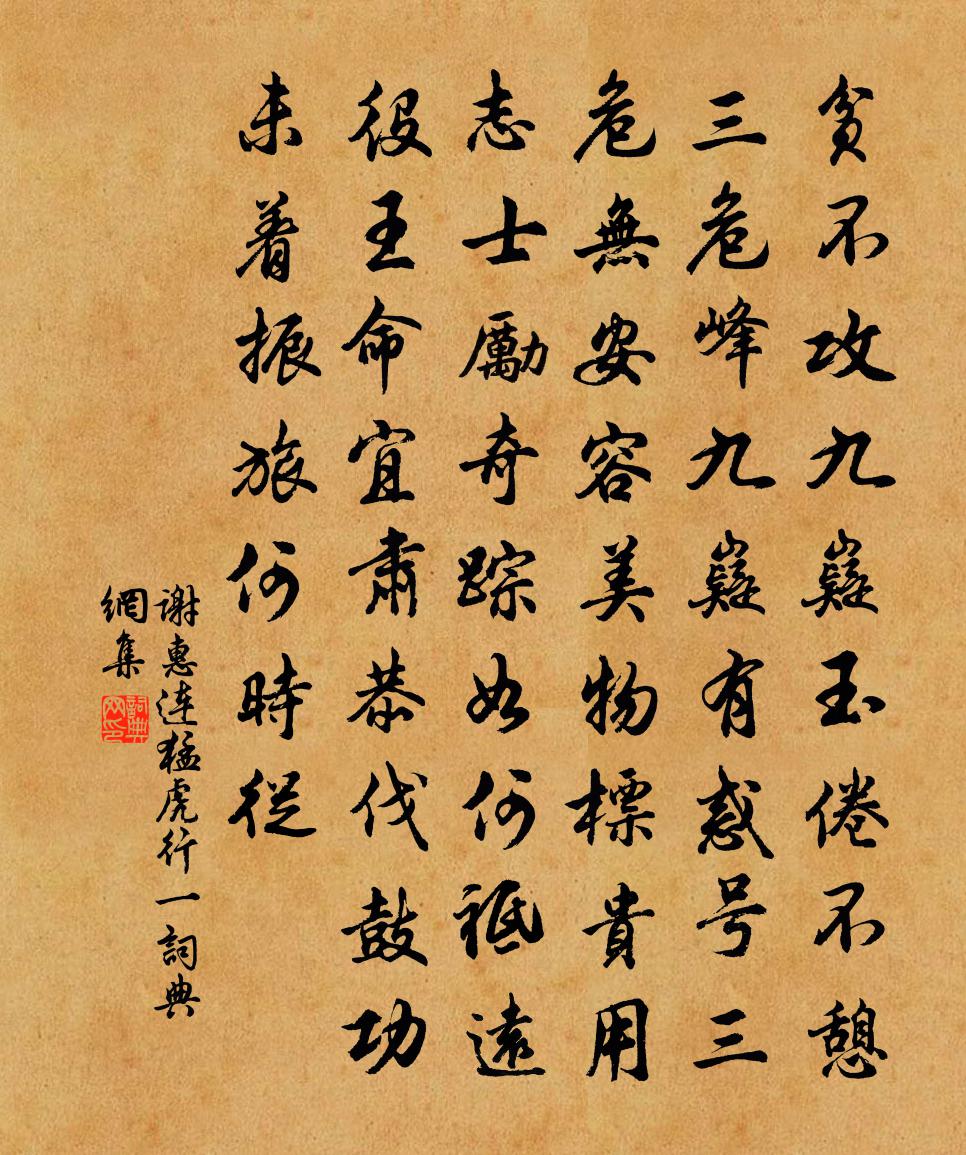 貧不攻九嶷玉倦不憩
三危峰九嶷有惑号三
危無安容美物標貴用
志士勵奇踪如何祗遠
役王命宜肅恭伐鼓功
未着振旅何時從
謝惠連猛虎行一詞典
網集
詞典
网印